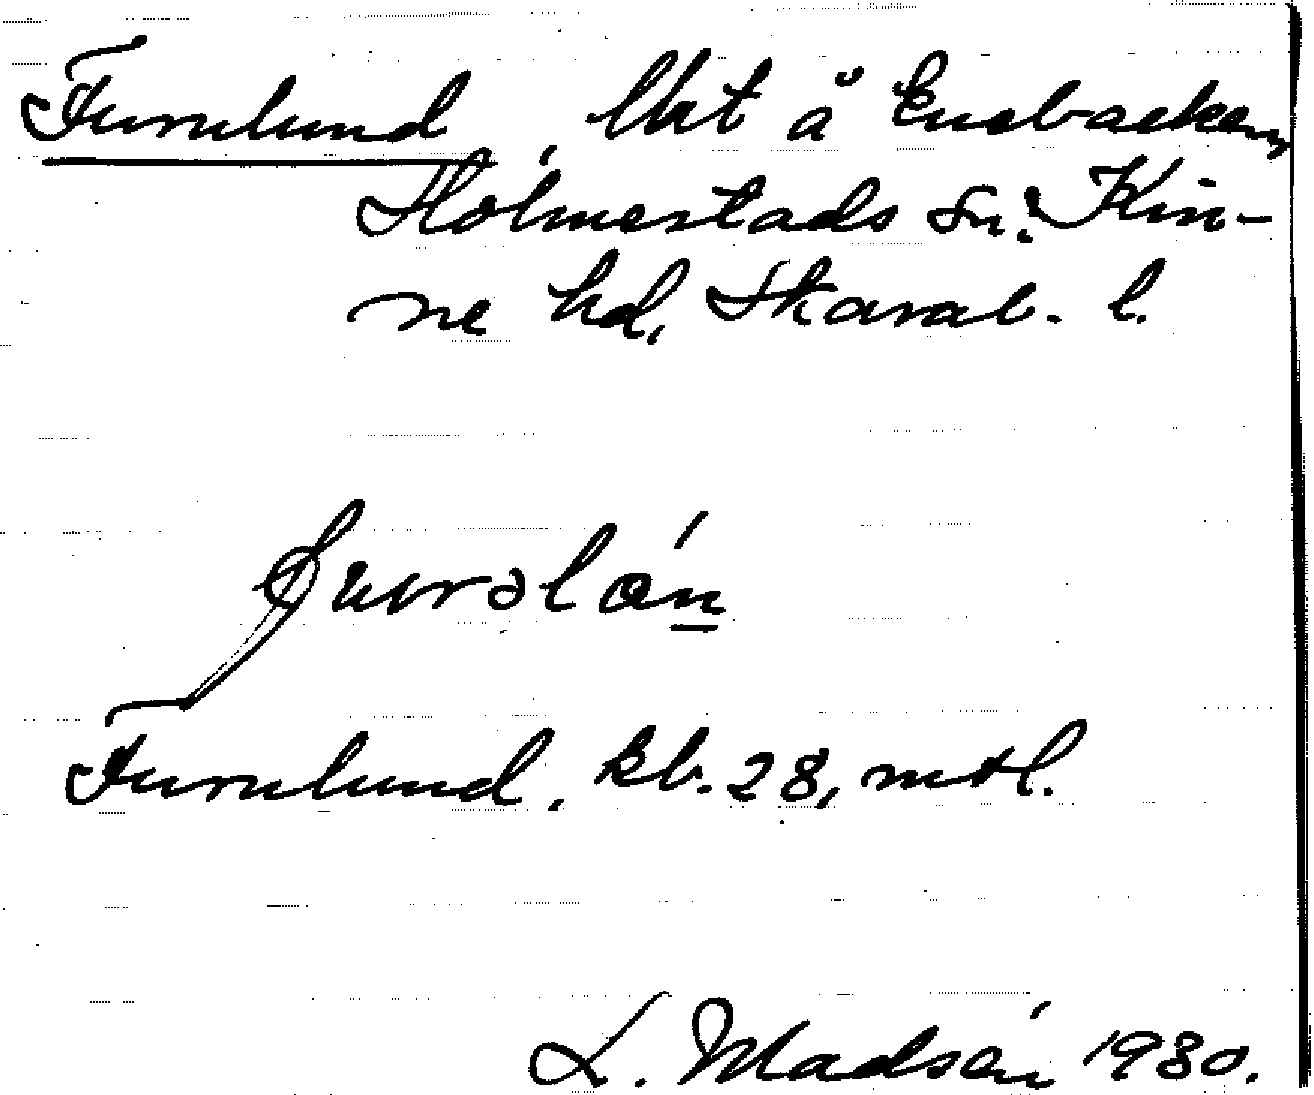 Furulund, lht å Enebacken,
Holmestads sn. Kin-
ne hd, Skarab. l.
Furulund. kb. 28, mtl.
L. Madsén 1930.